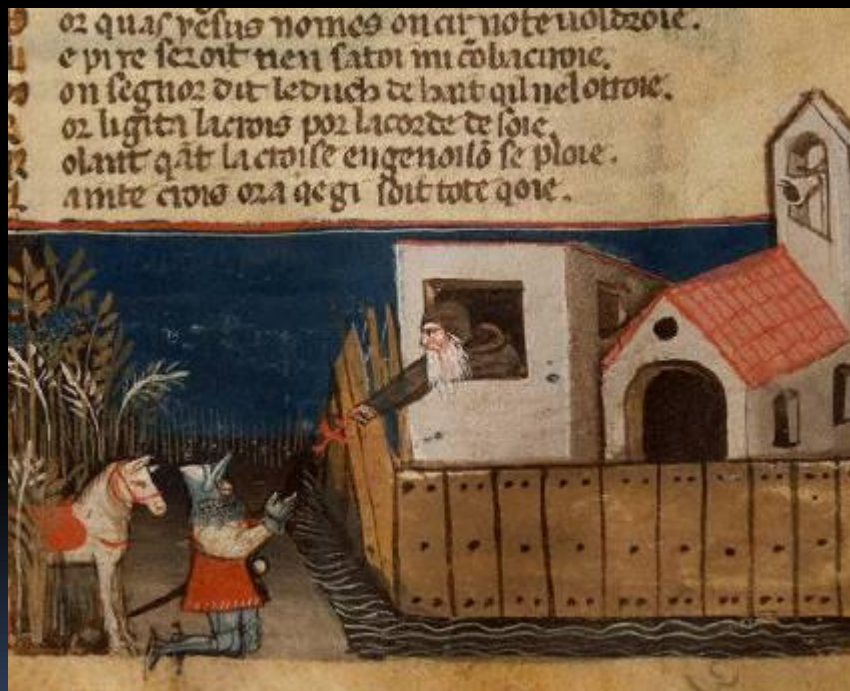 or quas yesus nomes on cir note uoldroie.
e pire seroit nen satoi mi cōbatroie.
on segnor dit le duch de bait qil nel otroie.
or ligita la crois por la corde de soie.
olant qāt la croise engenoilō se ploie.
ainte crois ora qe gi soit tote qoie.